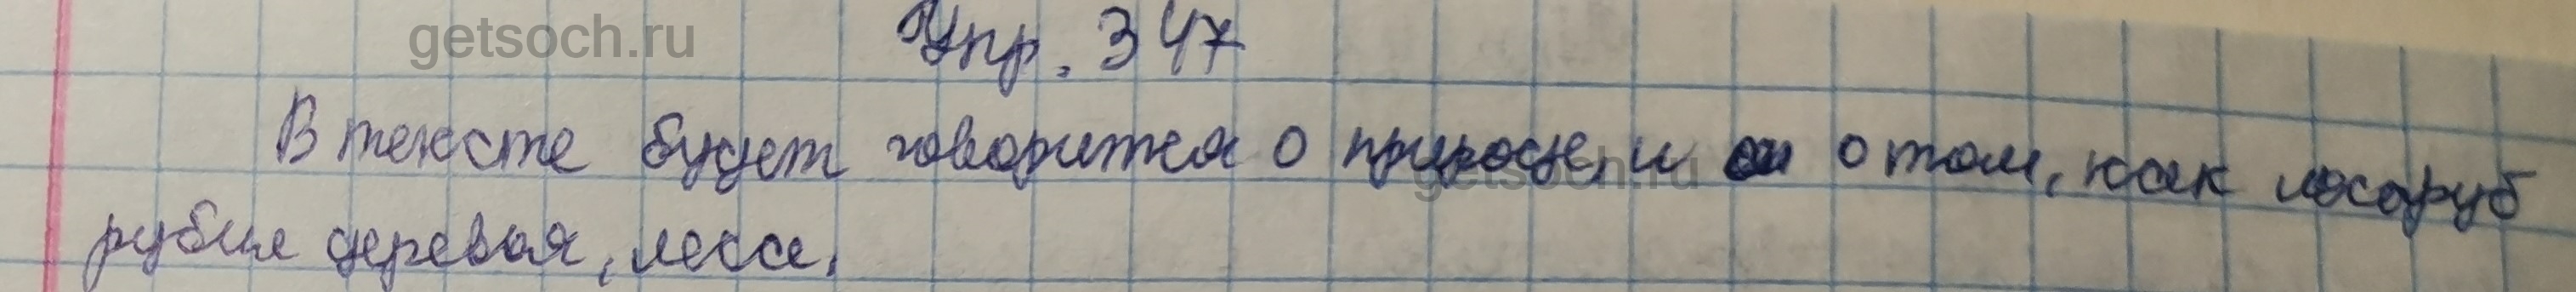 getsoch.ru
Упр. 347
В тексте будет говорится о природе, и о том, как лесоруб
getsoch.ru
рубил деревья, леса.